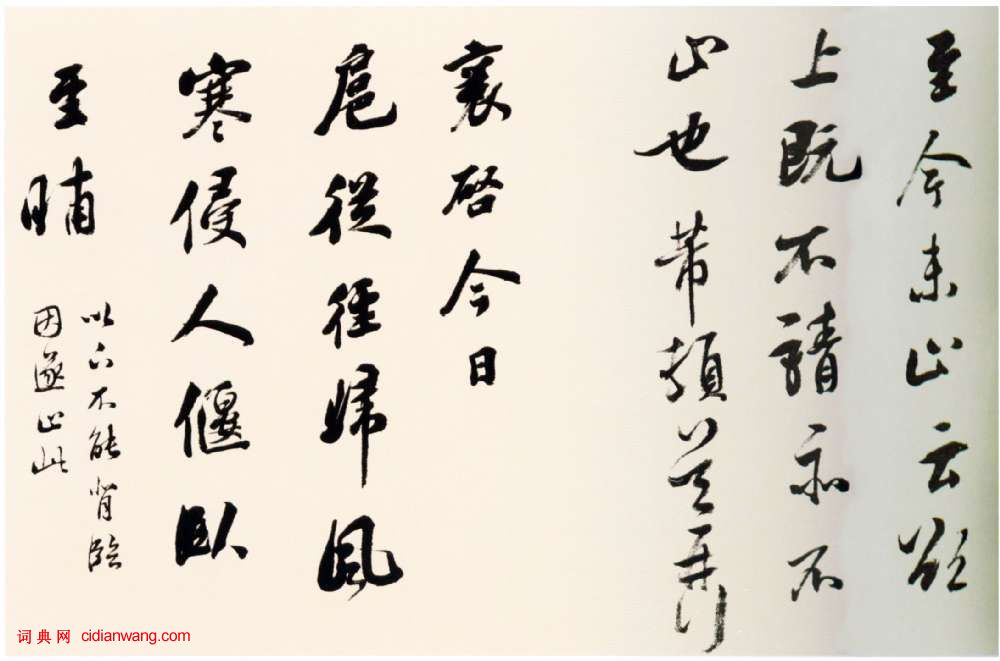 至今未出云欲
上既不請亦不
出也芾頓首再拜
襄啓今日
扈從徑歸風
寒侵人偃臥
至晡
以下不能背臨
因遂止此
词典网 cidianwang.com